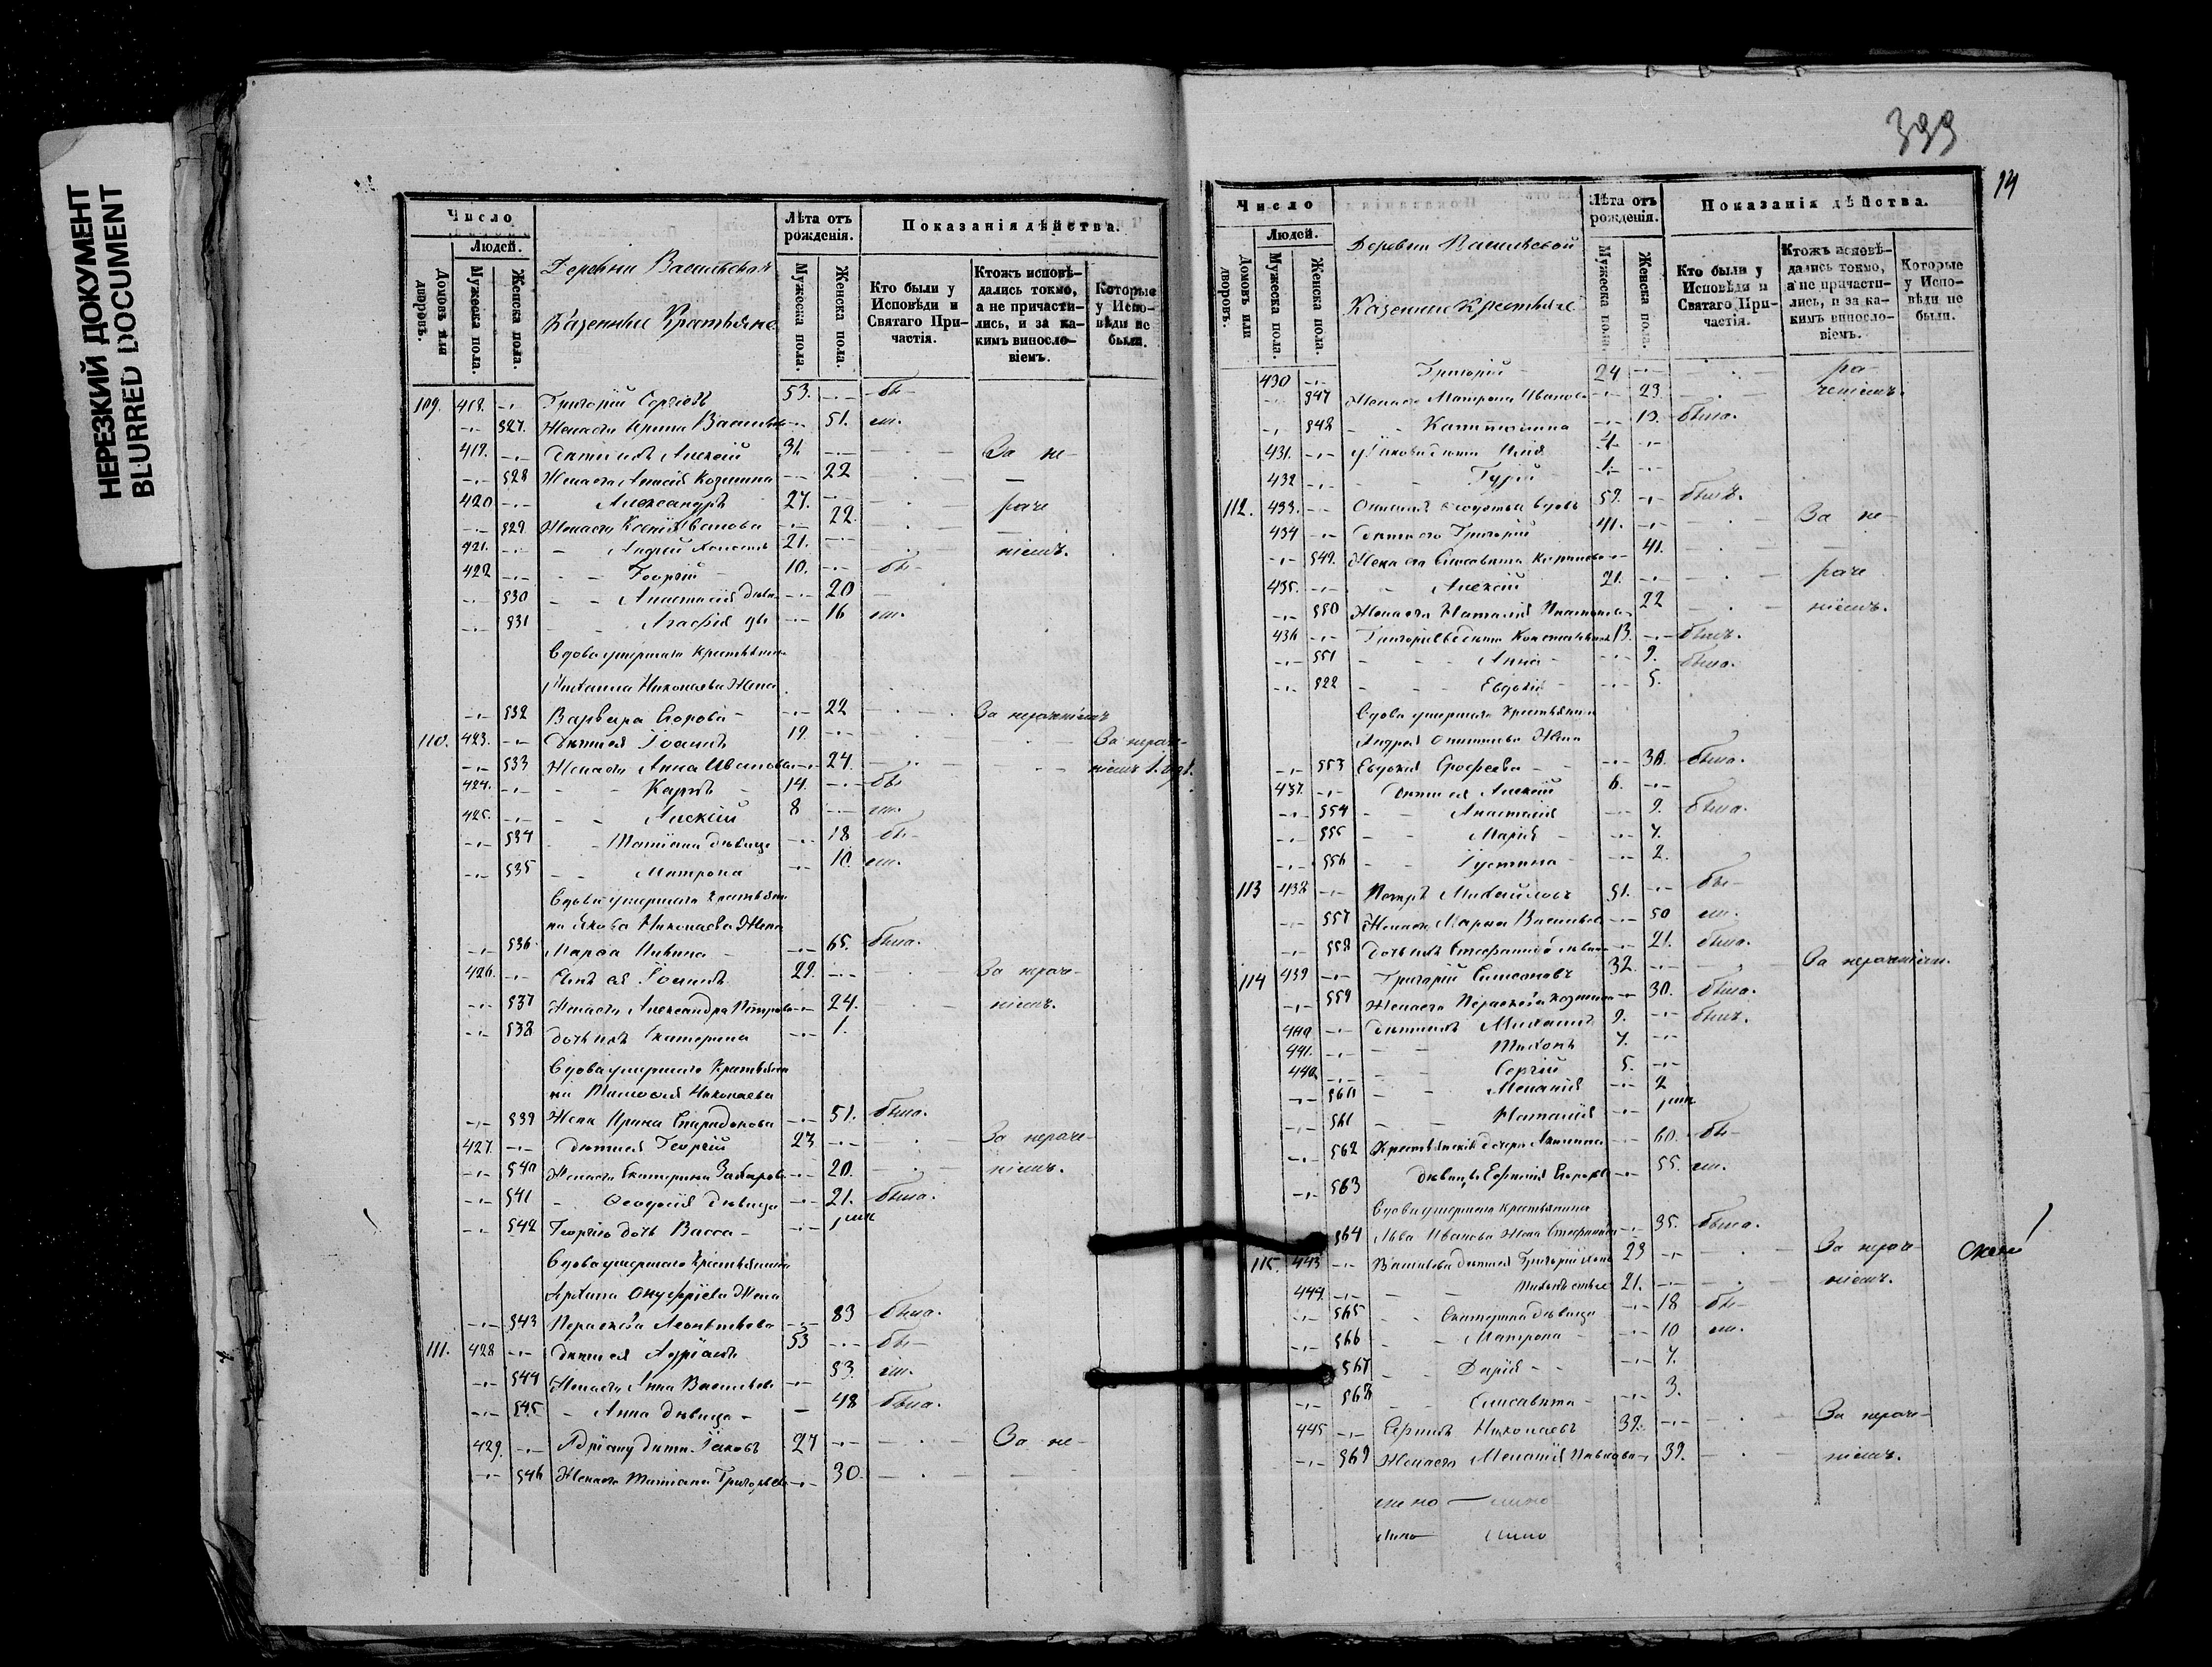 НЕРЕЗКИЙ ДОКУМЕНТ
BLURRED DOCUMENT
399
14
Число
Людей.
Домовъ или дворовъ.
Мужеска пола.
Женска пола.
Деревни Васильевой
Казенные Крестьяне
Лѣта отъ рожденія.
Мужеска пола.
Женска пола.
Показанія дѣйства.
Кто были у Исповѣди и Святаго Причастія.
Ктожъ исповѣдались токмо, а не причастились, и за какимъ винословіемъ.
Которые у Исповѣди не были.
109. 418. Григорій Сергіевъ 53. бы-
527. Жена его Ирина Васильева 51. ли.
419. Дѣти ихъ Алексій 31. За не-
528 Жена его Анисія Козмина 22 –
420 Александръ 27. раче
529. Жена его Ксенія Иванова 22. –
421. Андрей холостъ 21. ніемъ.
422 Георгій 10. бы-
530 Анастасія дѣвица 20 –
531 Агафія 16 ли.
Вдова умершаго Крестьянина
Николаева Жена
532 Варвара Егорова 22 За нераченіемъ
110. 423. Дѣти ея Іоаннъ 19. За нераче-
533 Жена его Анна Иванова 24. ніемъ
424. Карпъ 14. бы-
425. Алексій 8 ли.
534 Татіана дѣвица 18 бы-
535 Матрона 10. ли.
Вдова умершаго Крестьяни-
на Якова Николаева Жена
536. Марѳа 65. была.
426. Сынъ ея Іоаннъ 29. За нераче-
537 Жена его Александра Петрова 24. ніемъ.
538 Дочь ихъ Екатерина 1.
Вдова умершаго Крестьяни-
на Тимоѳея Николаева
539 Жена Ирина Спиридонова 51. была.
427. Дѣти ея Георгій 23 За нераче-
540 Жена его Екатерина Захарова 20. ніемъ.
541 Ѳеодосія дѣвица 21. была.
542 Георгія дочь Васса
Вдова умершаго Крестьянина
Архипа Онуфріева Жена
543 Параскева Леонтьева 83 была.
111. 428 Дѣти ея Адріанъ 53 бы-
544 Жена его Анна Васильева 53. ли.
545 Анна дѣвица 48 была.
429. Адріана дѣти Іаковъ 27 За не-
546 Жена его Татіана Григорьева 30.
Число
Людей.
Домовъ или дворовъ.
Мужеска пола.
Женска пола.
Деревни Васильевой
Казенные Крестьяне
Лѣта отъ рожденія.
Мужеска пола.
Женска пола.
Показанія дѣйства.
Кто были у Исповѣди и Святаго Причастія.
Ктожъ исповѣдались токмо, а не причастились, и за какимъ винословіемъ.
Которые у Исповѣди не были.
430 Григорій 24 ра-
547 Жена его Матрона Иванова 23 ченіемъ.
548 Капитолина 13. была.
431. Іакова дѣти Илія 4
432 Гурій 1.
112. 433. вдовъ 59. былъ.
434 Дѣти его Григорій 41. За не-
549. Жена его Елисавета 41. –
435. Алексій 21. раче
550 Жена его Наталія 22 ніемъ.
436 Григорія дѣти Константинъ 13. былъ.
551 Анна 9. была.
522 Евдокія 5.
Вдова умершаго Крестьянина
Андрея Жена
553 Евдокія Ерофеева 30. была.
437. Дѣти ея Алексій 6.
554 Анастасія 9. была.
555 Марія 7.
556 Іустина 2.
113 438 Петръ Михайловъ 51. бы-
557 Жена его Марѳа Васильева 50 ли.
558 Дочь ихъ Стефанида дѣвица 21. была.
114 439 Григорій Симеоновъ 32. За нераченіем.
559 Жена его Параскева Козмина 30. была.
440 Дѣти ихъ Михаилъ 9. былъ.
441. Тихонъ 7.
442 Сергій 5.
560 Меланія 2
561 Наталія
562 Крестьянскія дочери 60. бы-
563 дѣвицы Евфимія Егорова 55. ли.
Вдова умершаго Крестьянина
564 Льва Иванова Жена 35. была.
115. 443 Васильева дѣти Григорій 23 За нераче-
444. 21. ніемъ.
565 Екатерина дѣвица 18 бы-
566 Матрона 10 ли.
567 Дарія 7.
568 Елисавета 3.
445 Ермилъ Николаевъ 39. За нераче-
569 Жена его Меланія 39. ніемъ.